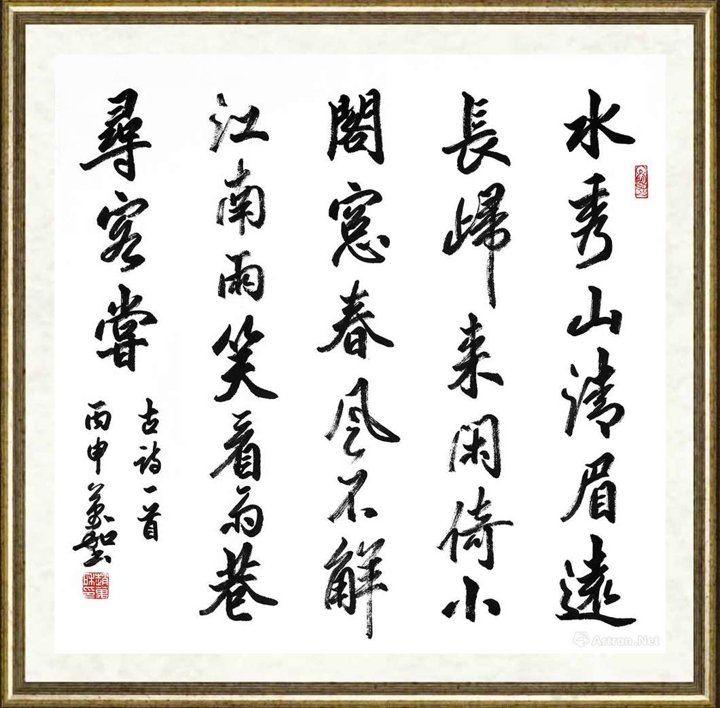 水秀山清眉遠
長歸来閑倚小
閣窓春風不解
江南雨笑看雨巷
尋客嘗
古詩一首
丙申
Artron.Net